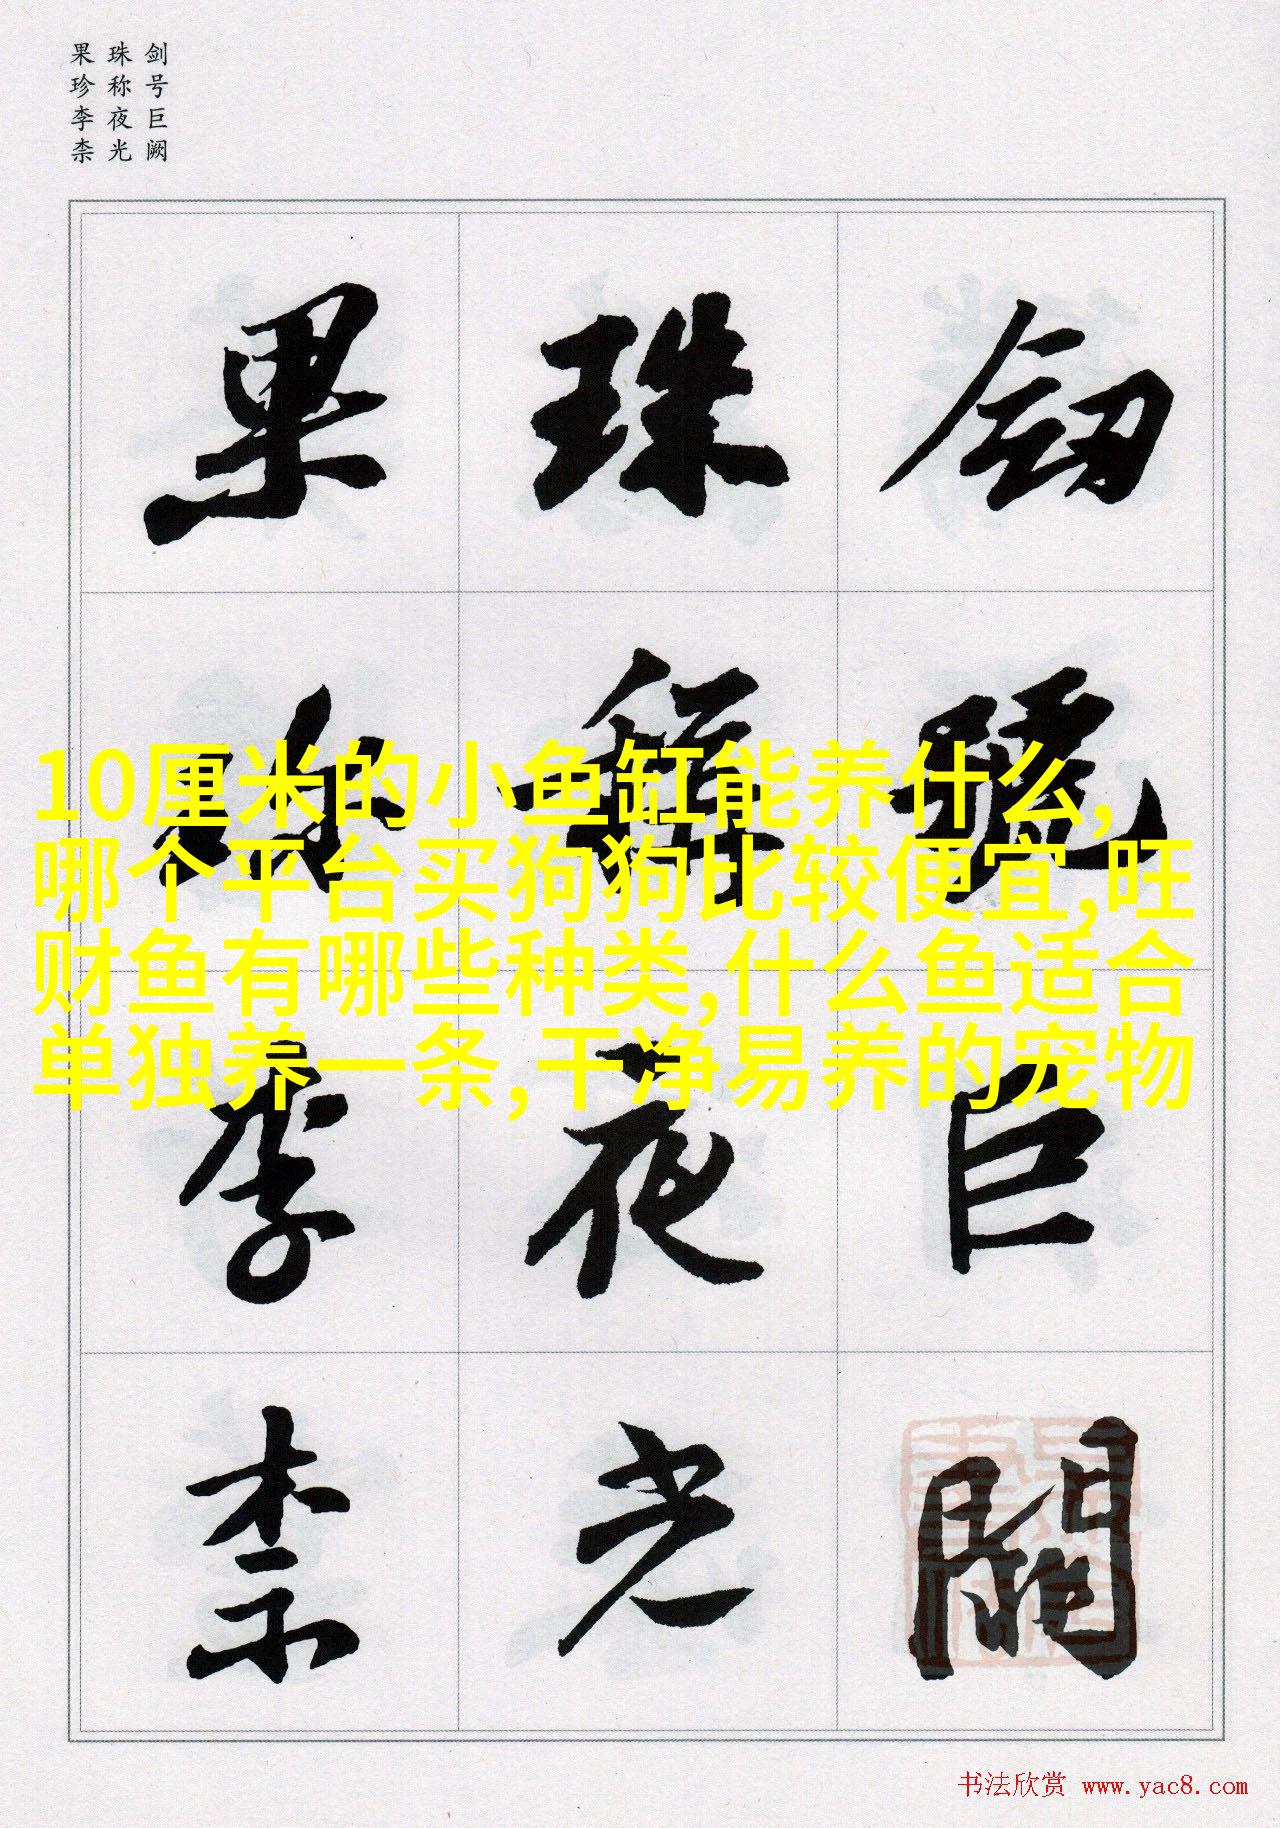 剑号巨阙
珠称夜光
果珍李柰
剑號巨闕
珠稱夜光
果珍李柰
10厘米的小鱼缸能养什么,
哪个平台买狗狗比较便宜,旺
财鱼有哪些种类,什么鱼适合
单独养一条,干净易养的宠物
书法欣赏 www.yac8.com